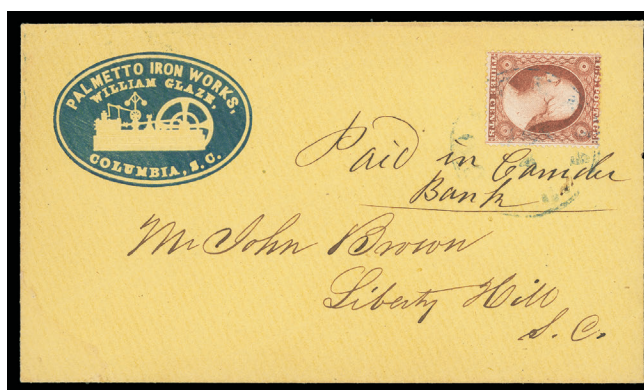 PALMETTO IRON WORKS,
WILLIAM GLAZE,
COLUMBIA, S.C.
THREE CENTS
Paid in Camden
Bank
Mr John Brown
Liberty Hill
S. C.